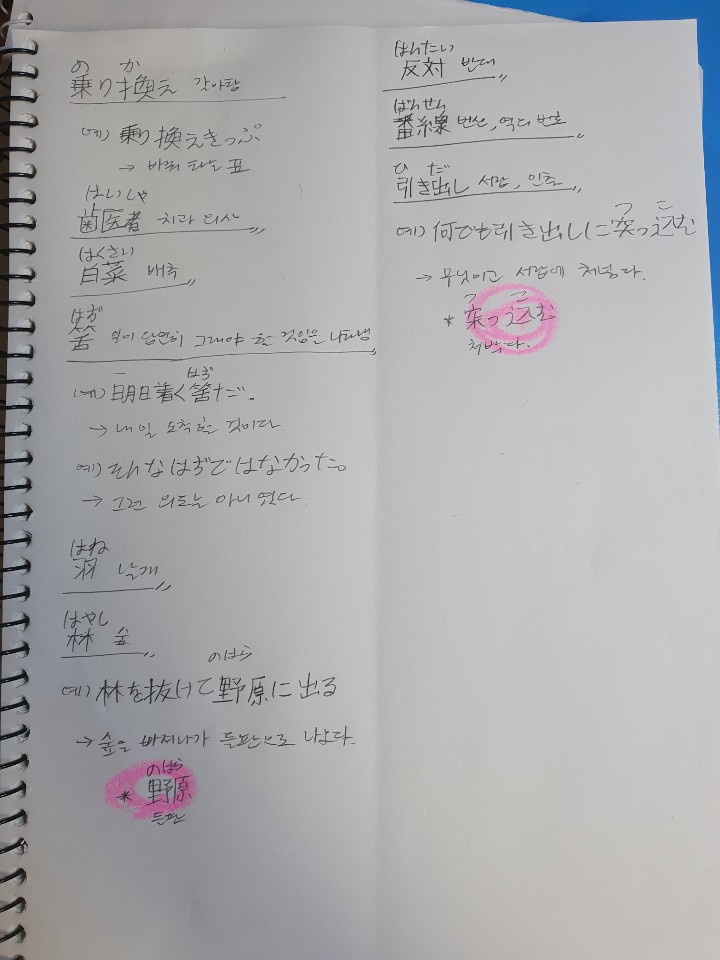 の か
乗り換え 갈아탐
예) 乗り換えきっぷ
→ 바꿔 타는 표
はいしゃ
歯医者 치과 의사
はくさい
白菜 배추
はず
筈 일이 당연히 그래야 할 것임을 나타냄
はず
예) 明日着く筈だ.
→ 내일 도착할 것이다
예) そんなはずではなかった。
→ 그런 의도는 아니었다.
はね
羽 날개
はやし
林 숲
のはら
예) 林を抜けて野原に出る
→ 숲을 빠져나가 들판으로 나오다.
のはら
* 野原
들판
はんたい
反対 반대
ばんせん
番線 번선, 역의 번호
ひ だ
引き出し 서랍, 인출
つ こ
예) 何でも引き出しに突っ込む
→ 무엇이고 서랍에 처넣다.
つ こ
* 突っ込む
처박다.